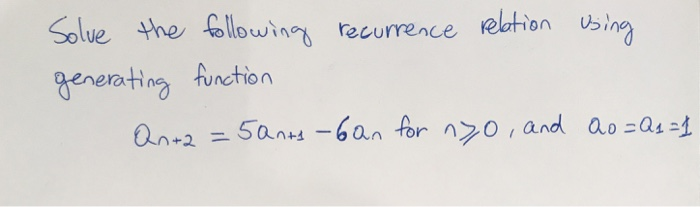 Solve the following recurrence relation using
generating function
an+2 = 5an+1 - 6an for n⩾0, and a0 = a1 = 1